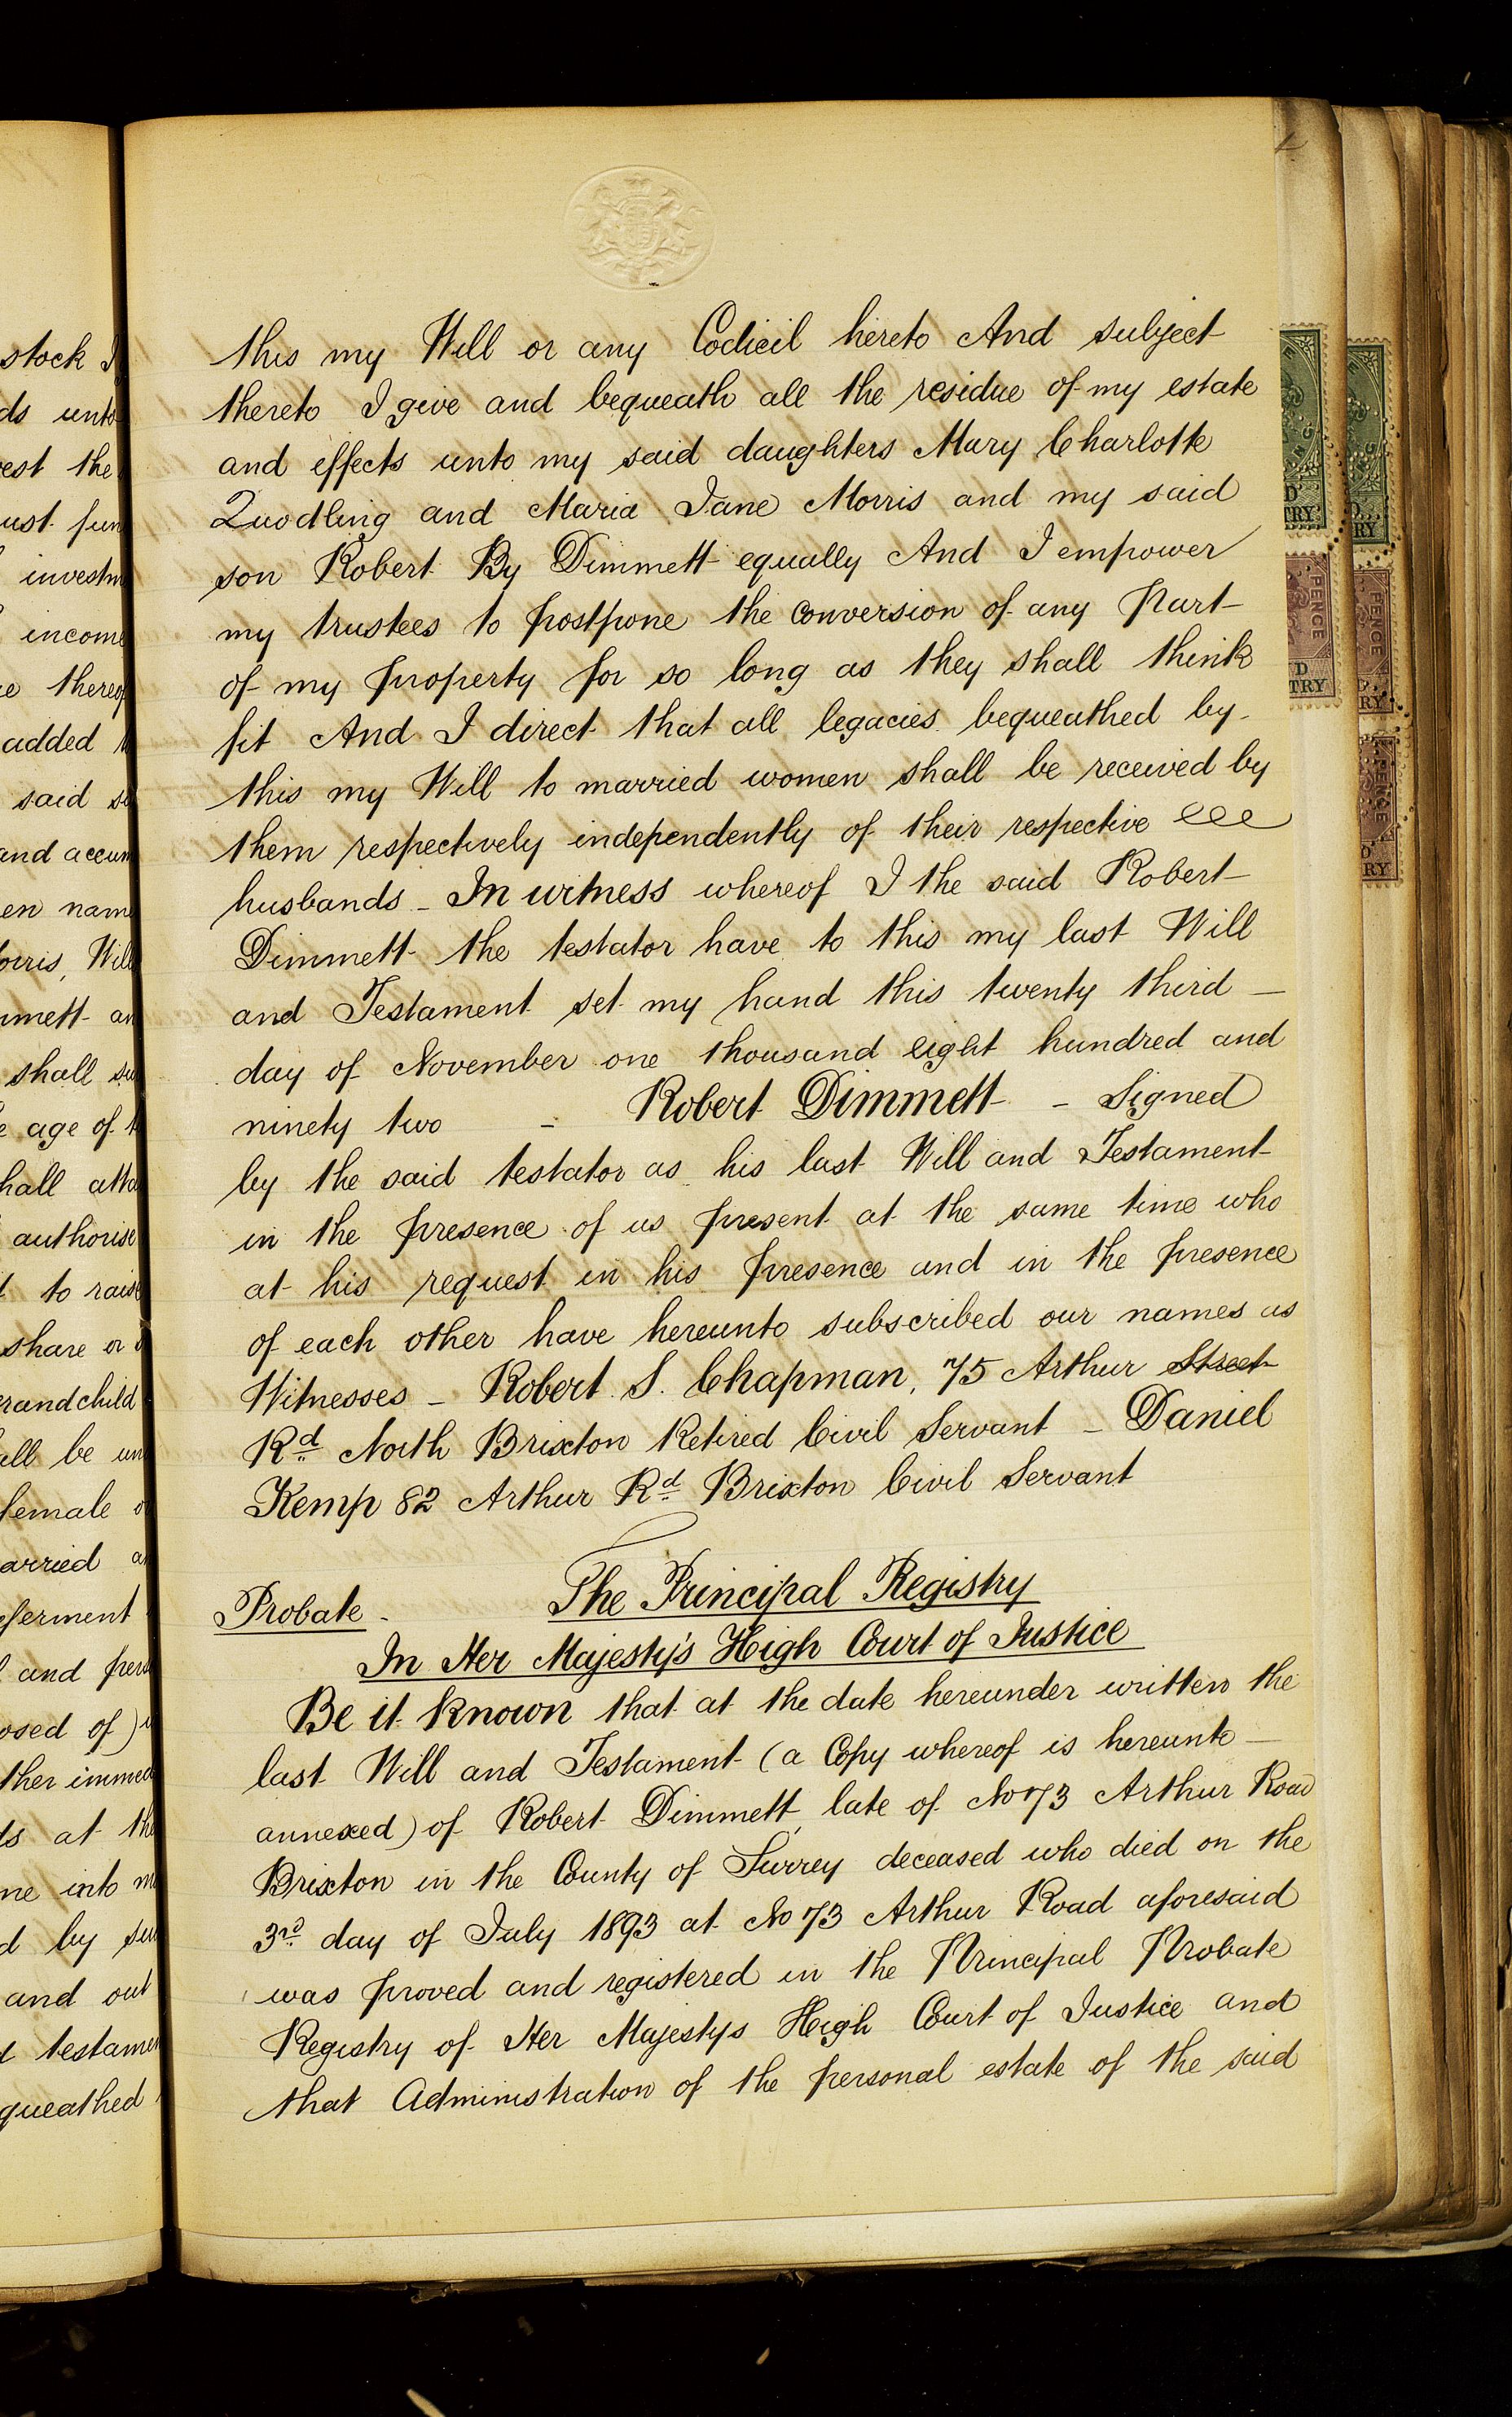 this my Will or any Codicil hereto And subject
thereto I give and bequeath all the residue of my estate
and effects unto my said daughters Mary Charlotte
Quodling and Maria Jane Morris and my said
son Robert By Dimmett equally And I empower
my trustees to postpone the conversion of any Part
of my property for so long as they shall think
fit And I direct that all legacies bequeathed by
this my Will to married women shall be received by
them respectively independently of their respective
husbands _ In witness whereof I the said Robert
Dimmett the testator have to this my last Will
and Testament set my hand this twenty third _
day of November one thousand eight hundred and
ninety two _ Robert Dimmett _ Signed
by the said testator as his last Will and Testament
in the presence of us present at the same time who
at his request in his presence and in the presence
of each other have hereunto subscribed our names as
Witnesses _ Robert S. Chapman, 75 Arthur Street
Rd North Brixton Retired Civil Servant _ Daniel
Kemp 82 Arthur Rd Brixton Civil Servant
Probate - The Principal Registry
In Her Majesty's High Court of Justice
Be it known that at the date hereunder written the
last Will and Testament (a Copy whereof is hereunto
annexed) of Robert Dimmett, late of No 73 Arthur Road
Brixton in the County of Surrey deceased who died on the
3rd day of July 1893 at No 73 Arthur Road aforesaid
was proved and registered in the Principal Probate
Registry of Her Majestys High Court of Justice and
that Administration of the personal estate of the said
stock I
unto
the
ust fun
income
added
said
age of
authorise
to raise
share or
all be
female
and
osed of)
at the
into
by
and out
PENCE
PENCE
PENCE